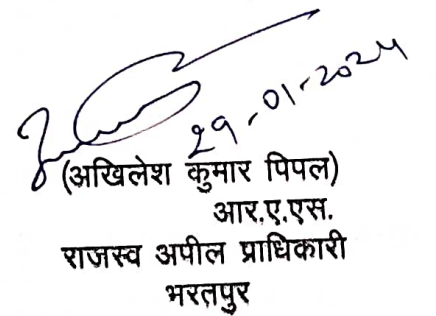 29-01-2024
(अखिलेश कुमार पिपल)
आर.ए.एस.
राजस्व अपील प्राधिकारी
भरतपुर